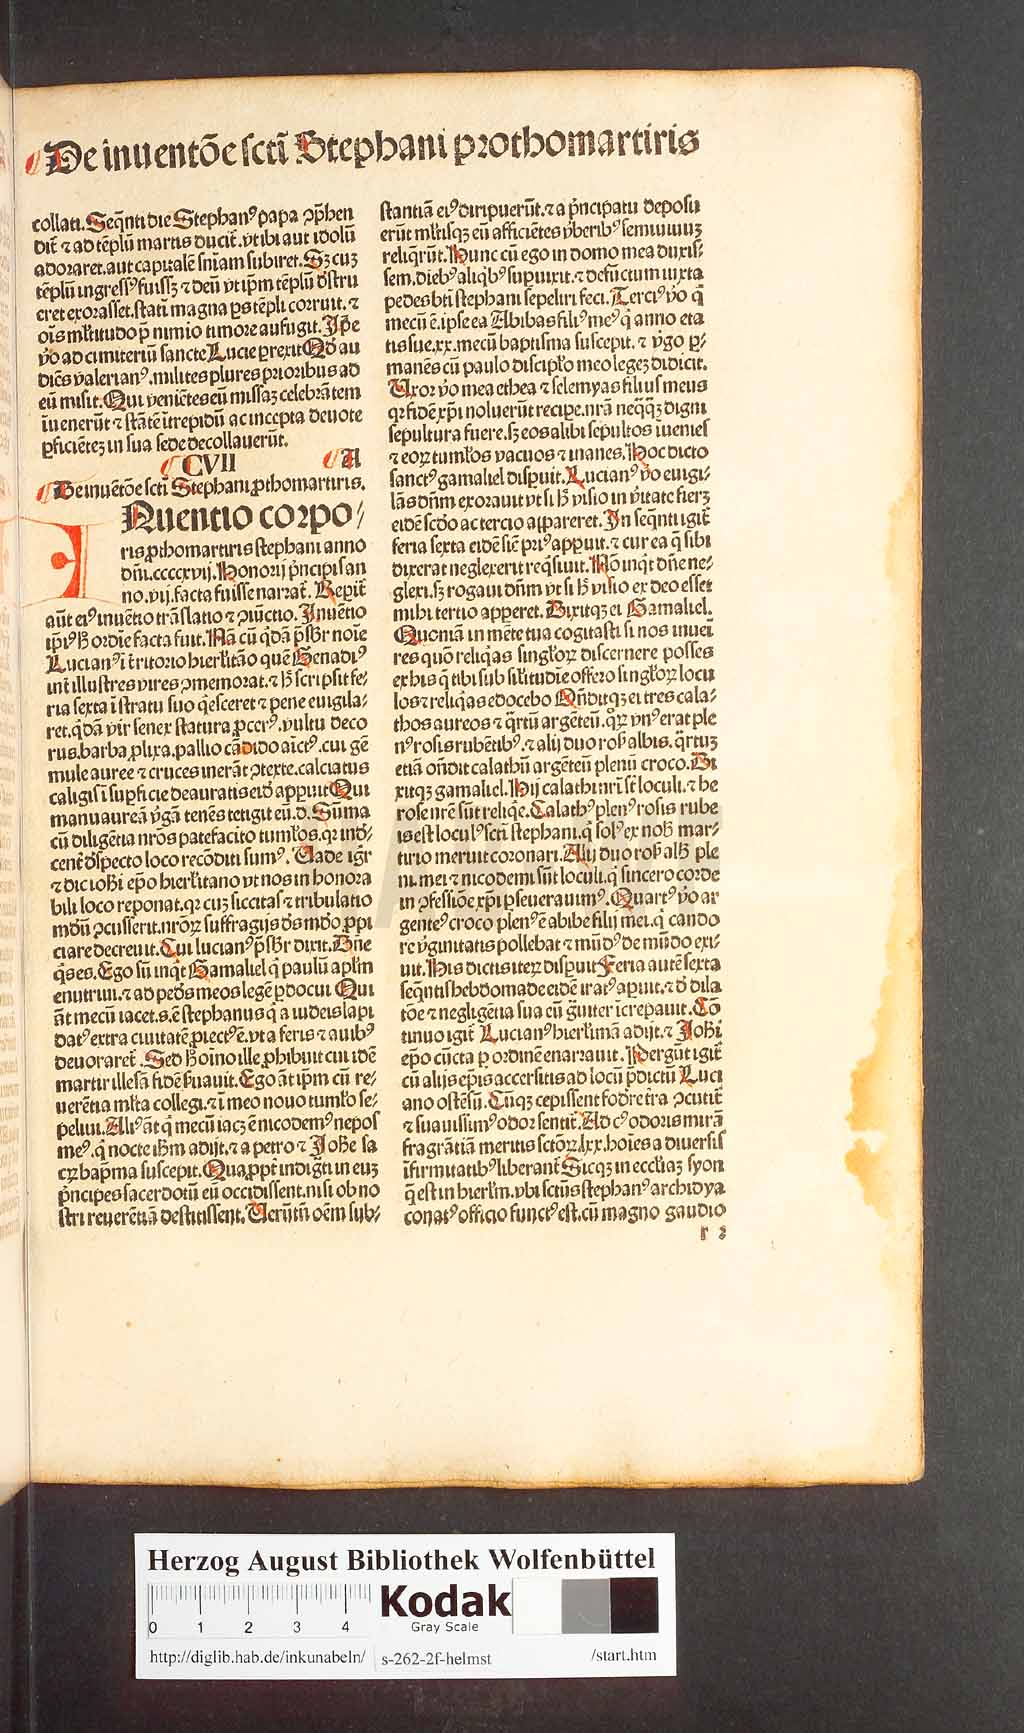 De inuentōe sctī Stephani prothomartiris
collati. Seq̄nti die Stephanꝰ papa ꝯp̄hen
dit̄ ⁊ ad tēplū martis ducit̄. vt ibi aut idolū
adoraret. aut capitalē sn̄iam subiret. Sꝫ cuꝫ
tēplū ingressꝰ fuissꝫ ⁊ deū vt ip̄m tēplū d̓stru
eret exorasset. statī magna ps tēpli corruit. ⁊
oīs mĺtitudo p̄ nimio timore aufugit. Ip̄e
v̓o ad cimiteriū sancte Lucie perexit Qd̓ au
diēs valerianꝰ. milites plures prioribus ad
eū misit. Qui veniētes eū missaꝫ celebrātem
īuenerūt ⁊ stātē ītrepidū ac incepta deuote
ꝑficiētēꝫ in sua sede decollauerūt.
CVII A
De inuētōe sctī Stephani ꝓthomartiris.
INuentio corpo/
ris ꝓthomartiris stephani anno
dn̄i. ccccxvij. Honorij p̄ncipis an
no. vij. facta fuisse narrat̄. Reꝑit̄
aūt eiꝰ inuētio trāslatio ⁊ ꝯiūctio. Inuētio
ip̄iꝰ h̓ ordīe facta fuit. Nā cū q̄dā p̄sbr̄ noīe
Lucianꝰ ī t̄ritorio hierlītāo quē Genadiꝰ
int̄ illustres vires ꝯmemorat. ⁊ h̓ scripsit fe/
ria sexta ī stratu suo q̓esceret ⁊ pene euigila/
ret. q̓dā vir senex statura ꝓcerꝰ. vultu deco
rus. barba ꝓlixa. pallio cādido aictꝰ. cui gē
mule auree ⁊ cruces inerāt ꝯtexte. calciatus
caligis ī suꝑficie deauratis eid̓ apꝑuit Qui
manu aureā v̓gā tenēs tetigit eū. d. Sūma
cū diligētia nr̄os patefacito tumĺos. qꝛ ind̓/
cent̄ d̓specto loco recōditi sumꝰ. Uade igr̄
⁊ dic ioh̄i ep̄o hierĺitano vt nos in honora
bili loco reponat. qꝛ cuꝫ siccitas ⁊ tribulatio
mūdū ꝯcusserit. nr̄oꝝ suffragijs d̓s mūdo ꝓpi
ciare decreuit. Cui lucianꝰ p̄sbr̄ dixit. Dn̄e
q̓s es. Ego sū inq̓t Gamaliel q̓ paulū apĺm
enutriui. ⁊ ad ped̓s meos legē ꝑdocui Qui
āt mecū iacet. s. ē stephanus q̓ a iudeis lapi
datꝰ extra ciuitatē ꝓiectꝰ ē. vt a feris ⁊ auibꝰ
deuoraret̄. Sed h̓ oīno ille ꝓhibuit cui idē
martir illesā fidē ẜuauit. Ego āt ip̄m cū re/
uerētia mĺta collegi. ⁊ ī meo nouo tumĺo se/
peliui. Aliꝰ āt q̓ mecū iacꝫ ē nicodemꝰ nepos
meꝰ. q̓ nocte ih̄m adijt. ⁊ a petro ⁊ Ioh̄e sa
cꝝ bap̄ma suscepit. Qua ꝓpt̄ indigᷓti in euꝫ
p̄ncipes sacerdotū eū occidissent. nisi ob no
stri reuerētiā destitissent. Uerūtn̄ oēm sub/
stantiā eiꝰ diripuerūt. ⁊ a p̄ncipatu deposu
erūt mĺtisqꝫ eū afficiētes v̓beribꝰ semiuiuuꝫ
reliq̄rūt. Hunc cū ego in domo mea duxis/
sem. diebꝰ aliq̄bꝰ supuixit. ⁊ defūctum iuxta
pedes bt̄i stephani sepeliri feci. Terciꝰ v̓o q̓
mecū ē. ipse ea Abibas filiꝰ meꝰ q̓ anno eta
tis sue. xx. mecū baptisma suscepit. ⁊ v̓go ꝑ/
manēs cū paulo discipĺo meo legeꝫ didicit.
Uxor v̓o mea ethea ⁊ selemyas filius meus
qꝛ fidē xp̄i noluerūt recipe. nr̄a neq̄qꝫ digni
sepultura fuere. sꝫ eos alibi sepultos īuenies
⁊ eoꝝ tumĺos vacuos ⁊ inanes. Hoc dicto
sanctꝰ gamaliel dispuit. Lucianꝰ v̓o euigi/
lās dn̄m exorauit vt si h̓ visio in v̓itate fierꝫ
eidē scd̓o ac tercio appareret. In seq̄nti igit̄
feria sexta eidē sic̄ priꝰ appuit. ⁊ cur ea q̄ sibi
dixerat neglexerit req̓siuit. Nō inq̓t dn̄e ne/
glexi. sꝫ rogaui dn̄m vt si h̓ visio ex deo esset
mihi tertio apperet. Dixitqꝫ ei Gamaliel.
Quoniā in mēte tua cogitasti si nos inuei
res quō reliq̓as singĺoꝝ discernere posses
ex his q̄ tibi sub silitudie offero singĺoꝝ locu
los ⁊ reliq̓as edocebo Qn̄ditqꝫ ei tres cala/
thos aureos ⁊ q̄rtū argēteū. q̓ꝝ vnꝰ erat ple
nꝰ rosis rubētibꝰ. ⁊ alij duo roẜ albis. q̄rtuꝫ
etiā on̄dit calathū argēteū plenū croco. Di
xitqꝫ gamaliel. Hij calathi nr̄i st̄ loculi. ⁊ he
rose nr̄e sūt reliq̓e. Calathꝰ plenꝰ rosis rube
is est loculꝰ sctī stephani. q̓ solꝰ ex nob̓ mar/
tirio meruit coronari. Alij duo roẜ alb̓ ple
ni. mei ⁊ nicodemi sūt loculi. q̓ sincero corde
in ꝯfessiōe xp̄i ꝑseuerauimꝰ. Quartꝰ v̓o ar
genteꝰ croco plenꝰ ē abibe filij mei. q̓ cando
re v̓ginitatis pollebat ⁊ mūdꝰ de mūdo exi/
uit. His dictis iteꝝ dispuit Feria autē sexta
seq̄ntis hebdomade eidē iratꝰ apꝑuit. ⁊ d̓ dila
tōe ⁊ negligētia sua cū gᷓuiter īcrepauit. Cō
tinuo igit̄ Lucianꝰ hierĺimā adijt. ⁊ Ioh̄i
ep̄o cūcta ꝑ ordinē enarrauit. Pergūt igit̄
cū alijs ep̄is accersitis ad locū p̄dictū Luci
ano ostēsū. Cūqꝫ cepissent fod̓re tra ꝯcutit̄
⁊ suauissimꝰ odor sentit̄. Ad cꝰ odoris mirā
fragrātiā meritis sctōꝝ. lxx. hoīes a diuersis
īfirmitatibꝰ liberant̄ Sicqꝫ in eccĺiaꝫ syon
q̄ est in hierĺm. vbi sctūs stephanꝰ archidya
conatꝰ officio functꝰ est. cū magno gaudio
r 2
Herzog August Bibliothek Wolfenbüttel
0 1 2 3 4
Kodak
Gray Scale
http://diglib.hab.de/inkunabeln/ s-262-2f-helmst /start.htm